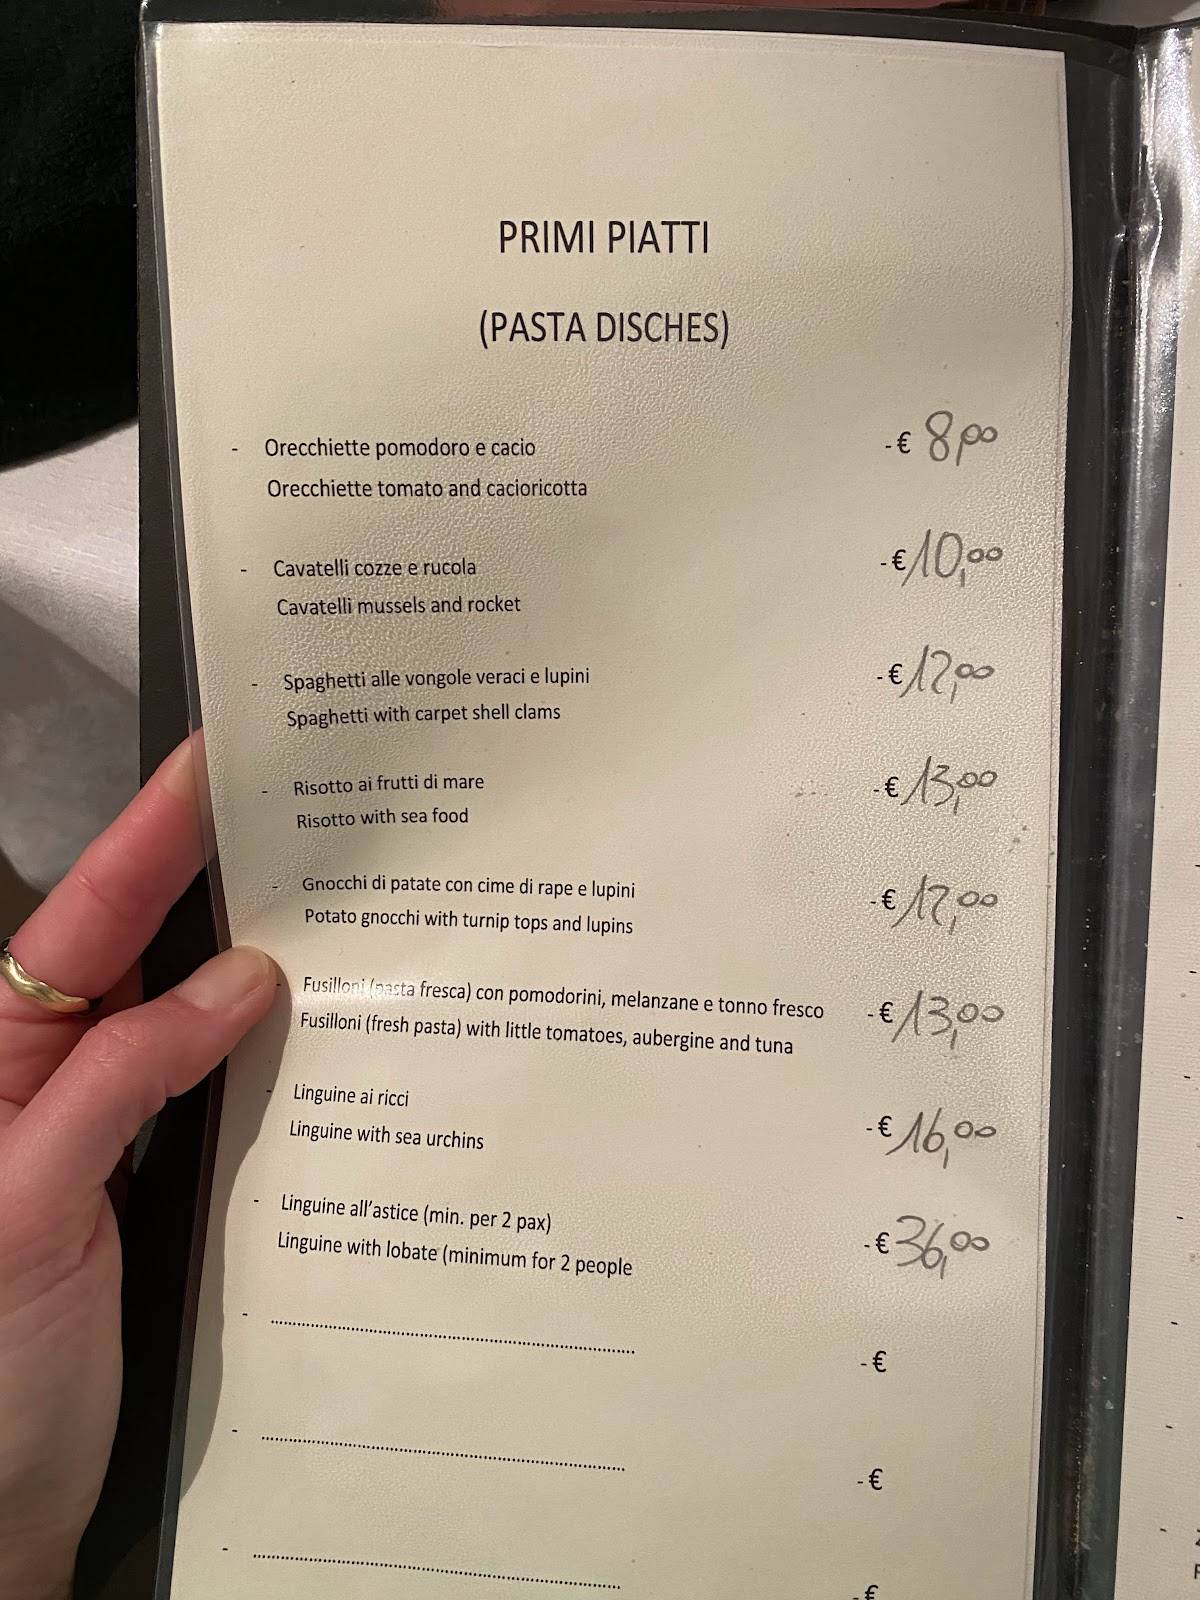 PRIMI PIATTI
(PASTA DISCHES)
- Orecchiette pomodoro e cacio -€ 8,00
Orecchiette tomato and cacioricotta
- Cavatelli cozze e rucola -€ 10,00
Cavatelli mussels and rocket
- Spaghetti alle vongole veraci e lupini -€ 12,00
Spaghetti with carpet shell clams
- Risotto ai frutti di mare -€ 13,00
Risotto with sea food
- Gnocchi di patate con cime di rape e lupini -€ 12,00
Potato gnocchi with turnip tops and lupins
- Fusilloni (pasta fresca) con pomodorini, melanzane e tonno fresco -€ 13,00
Fusilloni (fresh pasta) with little tomatoes, aubergine and tuna
- Linguine ai ricci -€ 16,00
Linguine with sea urchins
- Linguine all'astice (min. per 2 pax) -€ 36,00
Linguine with lobate (minimum for 2 people
- ........................................................................ -€
- ........................................................................ -€
- ........................................................................ -€